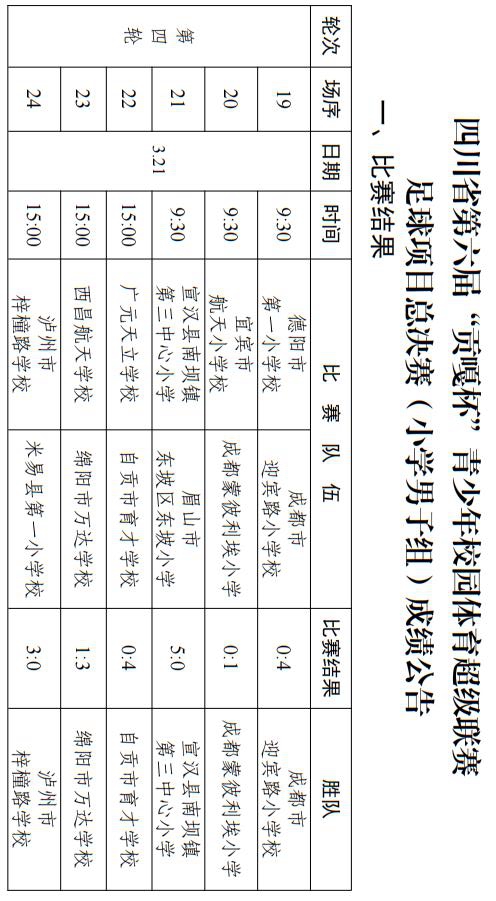 四川省第六届“贡嘎杯”青少年校园体育超级联赛
足球项目总决赛（小学男子组）成绩公告
一、比赛结果
轮次 场序 日期 时间 比赛队伍 比赛结果 胜队
第四轮 3.21
19 9:30 德阳市第一小学校 成都市迎宾路小学校 0:4 成都市迎宾路小学校
20 9:30 宜宾市航天小学校 成都蒙彼利埃小学 0:1 成都蒙彼利埃小学
21 9:30 宣汉县南坝镇第三中心小学 眉山市东坡区东坡小学 5:0 宣汉县南坝镇第三中心小学
22 15:00 广元天立学校 自贡市育才学校 0:4 自贡市育才学校
23 15:00 西昌航天学校 绵阳市万达学校 1:3 绵阳市万达学校
24 15:00 泸州市梓橦路学校 米易县第一小学校 3:0 泸州市梓橦路学校